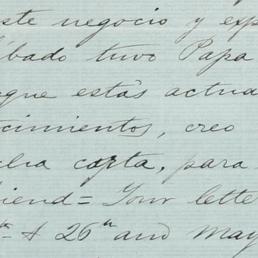 este negocio y exp
ábado tuvo Papa
que estás actua
cimientos, creo
cha carta, para
iend = Your lette
th & 26th and May